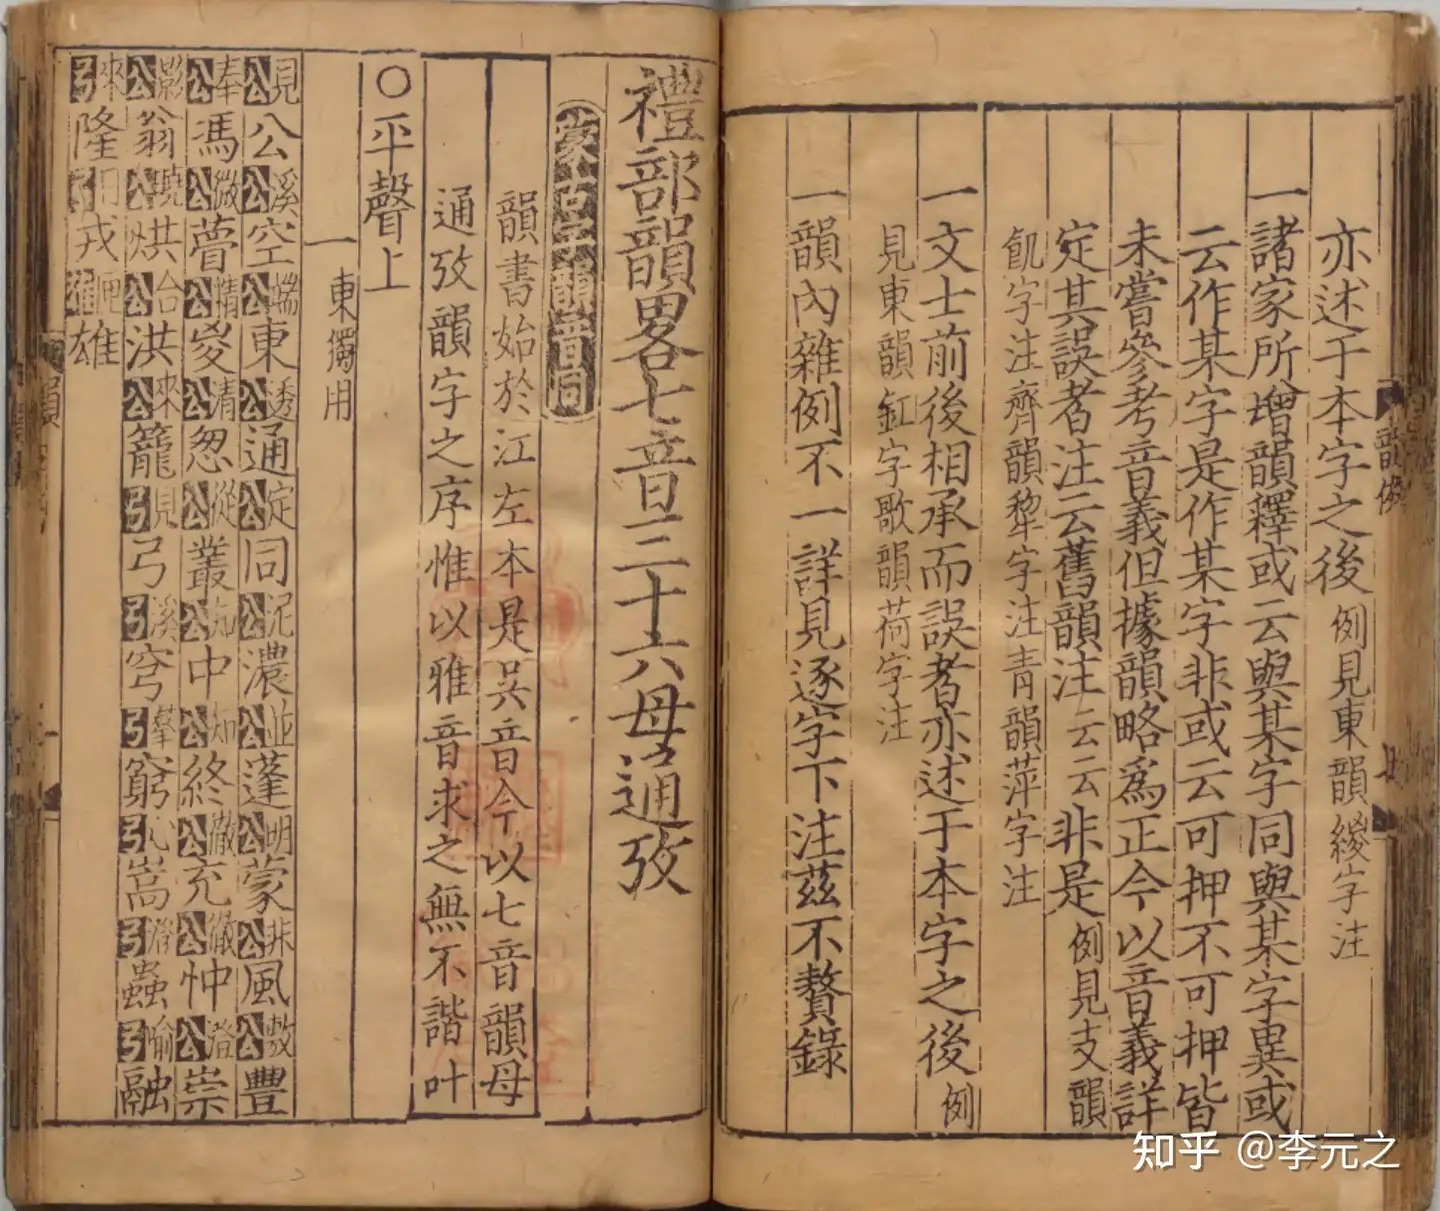 亦述于本字之後例見東韻緵字注
一諸家所增韻釋或云與某字同與某字異或
云作某字是作某字非或云可押不可押皆
未嘗參考音義但據韻略爲正今以音義詳
定其誤者注云舊韻注云云非是例見支韻
飢字注齊韻犂字注青韻萍字注
一文士前後相承而誤者亦述于本字之後例
見東韻釭字歌韻荷字注
一韻內雜例不一詳見逐字下注茲不贅錄
禮部韻畧七音三十六母通攷
蒙古字韻音同
韻書始於江左本是吳音今以七音韻母
通攷韻字之序惟以雅音求之無不諧叶
○平聲上
一東獨用
見公公溪公空端公東透公通定公同泥公濃並公蓬明公蒙非公風敷公豐
奉公馮微公瞢精公嵏清公怱從公叢知公中知公終徹公充徹公忡澄公崇
影公翁曉公烘合公洪來公籠見弓弓溪弓穹羣弓窮心弓嵩澄弓蟲喻弓融
來弓隆日弓戎匣雄雄
韻例
知乎 @李元之